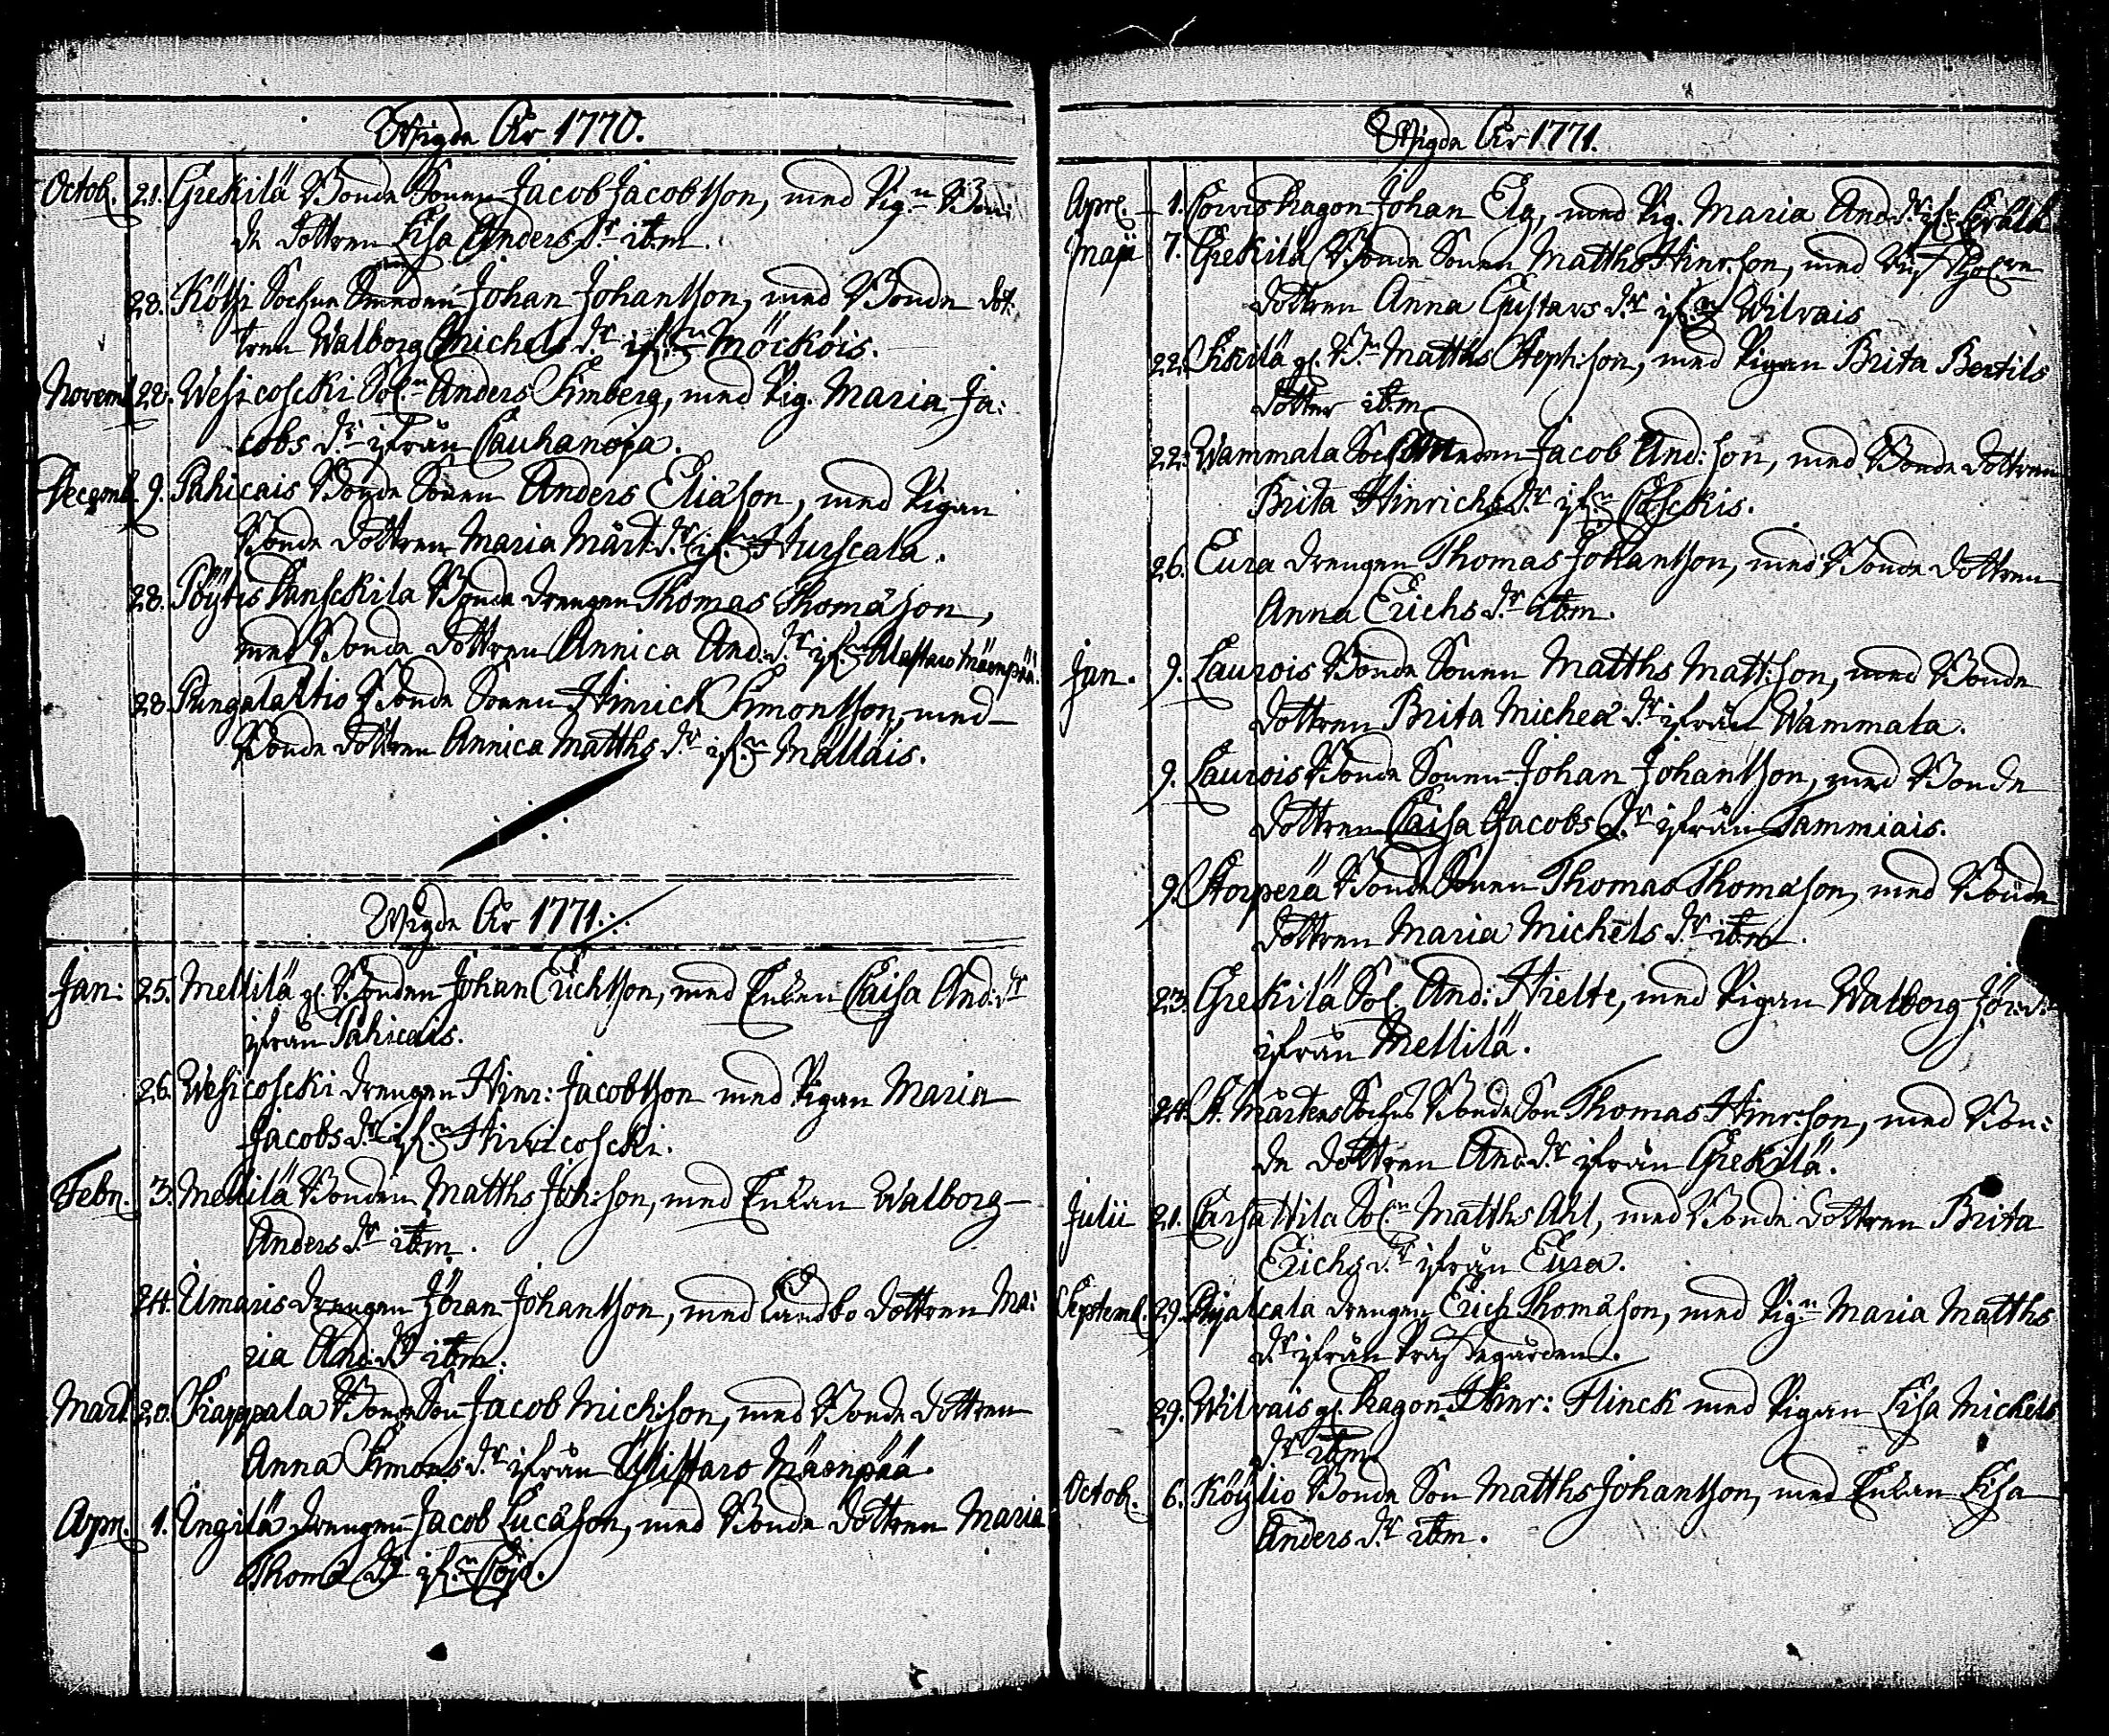 Wigde År 1770.
Octob. 21. Grekilä Bonde Sonen Jacob Jacobsson, med Pig:n Bon:
de dottren Lisa Anders d:r ib:m.
28. Kötsi Sochne Smeden Johan Johansson, med Bonde dot:
tren Walborg Michels d:r if:n Möcköis.
Novemb. 22. Wesicoscki Sol:n Anders Simberg, med Pig. Maria Ja:
cobs d:r ifrån Cauhanoja.
Decemb. 9. Pahicais Bonde Sonen Anders Eliæson, med Pigan
Bonde dottren Maria Mårt: d:r if:n Hurscala.
28. Pöytis Pansckila Bonde drengen Thomas Thomæson,
med Bonde dottren Annica And: d:r if:n Alastaro Mäenpää.
28. Pungalaitio Bonde Sonen Hinrick Simonsson, med
Bonde dottren Annica Matths d:r if:n Mälläis.
Wigde År 1771.
Jan: 25. Mellilä gl. Bonden Johan Erichsson, med Enkan Caisa And: d:r
ifrån Pahicais.
26. Wesicoscki drengen Hinr: Jacobsson med Pigan Maria
Jacobs d:r if:n Hirvicoscki.
Febr. 3. Mellilä Bonden Matths Joh:son, med Enkan Walborg
Anders d:r ib:m.
24. Umaris drengen Jöran Johansson, med Landbo dottren Ma:
ria And: d:r ib:m.
Mart. 20. Kappala Bonde Son Jacob Mich:son, med Bonde dottren
Anna Simons d:r ifrån Mäenpää.
Apr. 1. Ungilä drengen Jacob Lucæson, med Bonde dottren Maria
Thom: d:r if:n Coja.
Wigde År 1771.
Apr. 1. Dragon Johan Elg, med Pig. Maria And: d:r if:n
Maji 7. Grekilä Bonde Sonen Matths Hinr:son, med
dottren Anna Gustavs d:r if:n Wilvais
22. Kiskilä gl. B:n Matths Steph:son, med Pigan Brita Bertils
dotter ib:m
22. Wammala Soch. Smeden Jacob And:son, med Bonde dottren
Brita Hinrichs d:r if:n
26. Eura drengen Thomas Johansson, med Bonde dottren
Anna Erichs d:r ib:m.
Jun. 9. Laurois Bonde Sonen Matths Matt:son, med Bonde
dottren Brita Michels d:r ifrån Wammala.
9. Laurois Bonde Sonen Johan Johansson, med Bonde
dottren Caisa Jacobs d:r ifrån Tammiais.
9. Storperä Bonde Sonen Thomas Thomæson, med Bonde
dottren Maria Michels d:r ib:m.
23. Grekilä Sol. And: Hielte, med Pigan Walborg Jör: d:r
ifrån Mellilä.
24. St. Mårtens Sochns Bonde Son Thomas Hinr:son, med Bon:
de dottren And: d:r ifrån Grekilä.
Julii 21. Carsattila Sol:n Matths Ahl, med Bonde dottren Brita
Erichs d:r ifrån Eura.
Septemb. 29. drengen Erich Thomæson, med Pig:n Maria Matths
d:r ifrån Prästegården.
29. Wilvais gl. Dragon Hinr: Flinck med Pigan Lisa Michels
d:r ib:m
Octob. 6. Köylio Bonde Son Matths Johansson, med Enkan Lisa
Anders d:r ib:m.